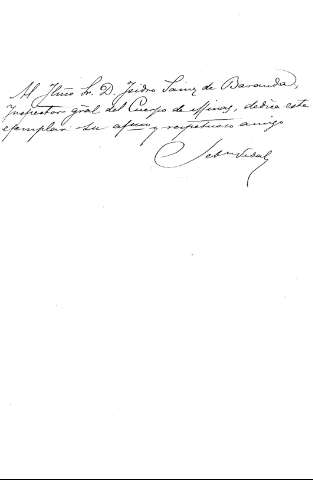 Al Ilmo Sr. D. Isidro Sainz de Baranda,
Inspector gral del Cuerpo de Minas, dedica este
ejemplar su afmo y respetuoso amigo